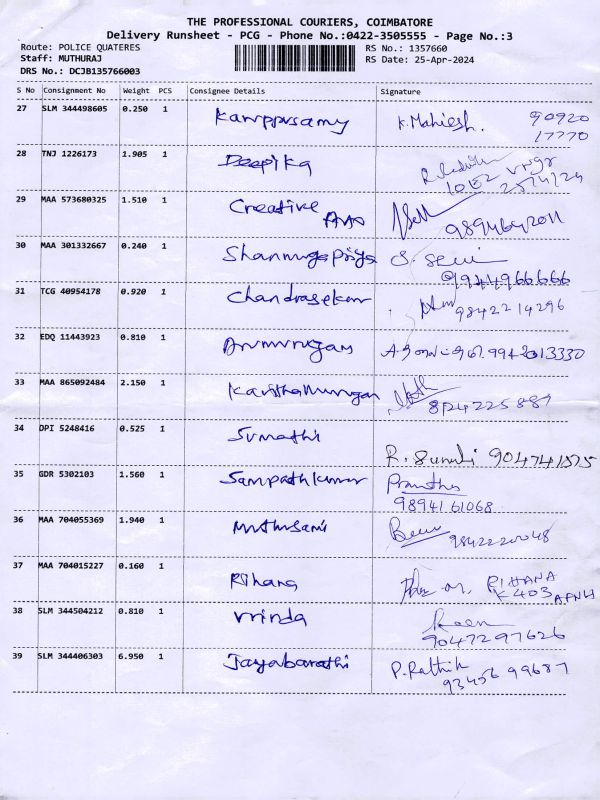 THE PROFESSIONAL COURIERS, COIMBATORE
Delivery Runsheet - PCG - Phone No.:0422-3505555 - Page No.:3
Route: POLICE QUATERES
RS No.: 1357660
Staff: MUTHURAJ
RS Date: 25-Apr-2024
DRS No.: DCJB135766003
S No Consignment No Weight PCS Consignee Details Signature
27 SLM 344498605 0.250 1 Karuppusamy K. Mahiesh. 90920
17770
28 TNJ 1226173 1.905 1 Deepika
25/4/24
29 MAA 573680325 1.510 1 Creative Ads 9894642011
30 MAA 301332667 0.240 1 Shanmugapriya S. Selvi
9944966666
31 TCG 40954178 0.920 1 Chandrasekar
9842214296
32 EDQ 11443923 0.810 1 Arumurugam 9942013330
33 MAA 865092484 2.150 1
8124225887
34 DPI 5248416 0.525 1 Sumathi
R. Sumathi 9047471575
35 GDR 5302103 1.560 1 Sampathkumar
98941 61068
36 MAA 704055369 1.940 1 Muthusami
9842220048
37 MAA 704015227 0.160 1 Rihana RIHANA
K403
38 SLM 344504212 0.810 1 Vrinda
9047297626
39 SLM 344406303 6.950 1 Jayabarathi P. Rathik
93456 99687